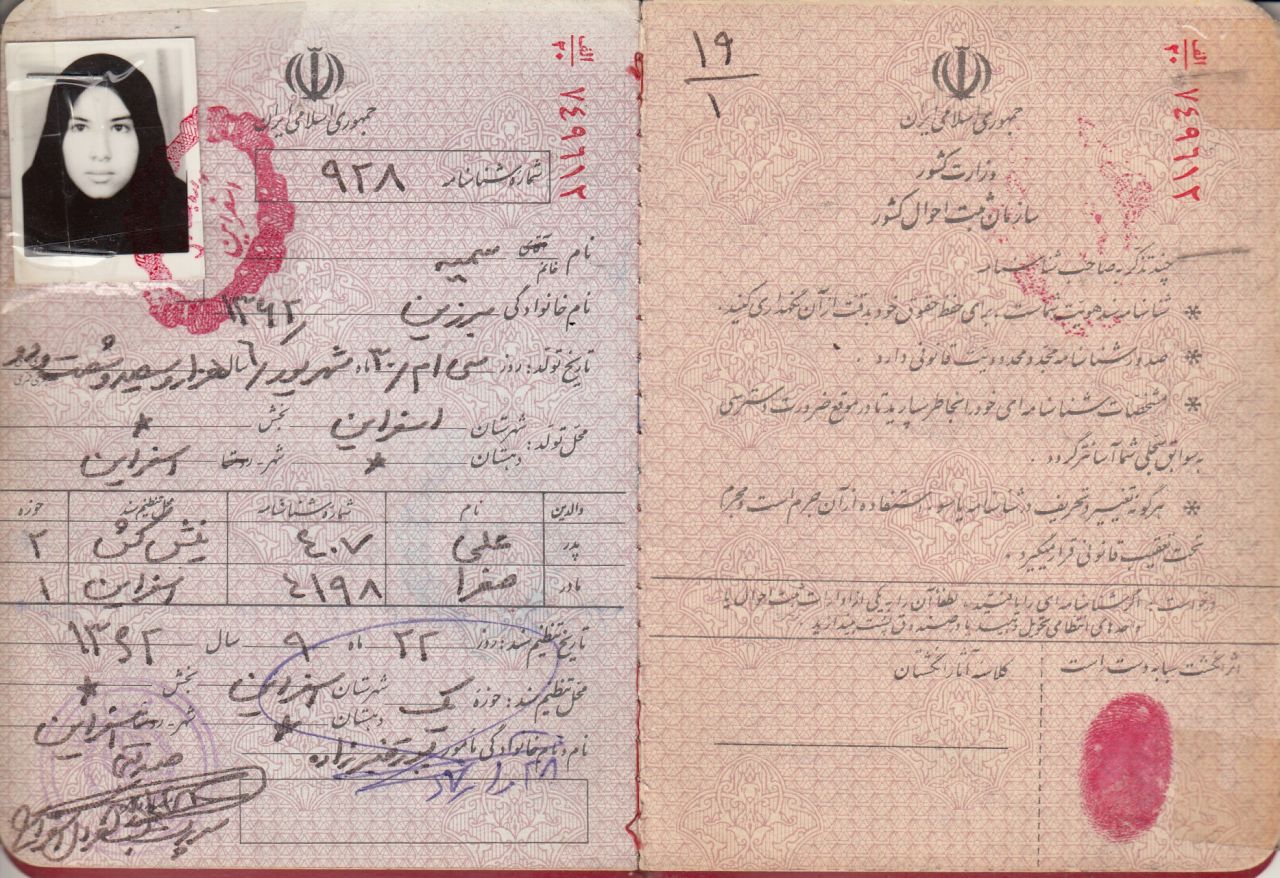 ۱۹
۱
الف
۲۰
۷۴۹۶۱۲
جمهوری اسلامی ایران
وزارت کشور
سازمان ثبت احوال کشور
چند تذکر به صاحب شناسنامه
* شناسنامه سند هویت شماست، برای حفظ حقوق خود بدقت از آن نگهداری کنید.
* صدور شناسنامه مجدد محدودیت قانونی دارد.
* مشخصات شناسنامه ای خود را بخاطر بسپارید تا در موقع ضرورت دسترسی
بسوابق سجلی شما آسانتر گردد.
* هرگونه تغییر و تحریف در شناسنامه یا سوء استفاده از آن جرم است و مجرم
تحت تعقیب قانونی قرار میگیرد.
درخواست: اگر شناسنامه ای را یافتید، لطفاً آن را به یکی از ادارات ثبت احوال یا
واحدهای انتظامی تحویل دهید یا در صندوق پست بیندازید
اثر انگشت سبابه دست راست
کلاسه آثار انگشتان
الف
۲۰
۷۴۹۶۱۲
جمهوری اسلامی ایران
شماره شناسنامه ۹۲۸
اسفراین
نام آقای خانم سمیه
نام خانوادگی برزین ۱۳۶۲
تاریخ تولد: روز سی ام/۳۰ ماه شهریور/۶ سال هزار و سیصد و شصت و دو
محل تولد: شهرستان اسفراین بخش *
دهستان * شهر-روستا اسفراین
والدین نام شماره شناسنامه محل تنظیم سند حوزه
پدر علی ۴۰۷ ۲
مادر صغرا ۴۱۹۸ اسفراین ۱
تاریخ تنظیم سند: روز ۲۲ ماه ۹ سال ۱۳۶۲
محل تنظیم سند: حوزه یک شهرستان اسفراین بخش *
دهستان * شهر-روستا اسفراین
نام و نام خانوادگی مامور